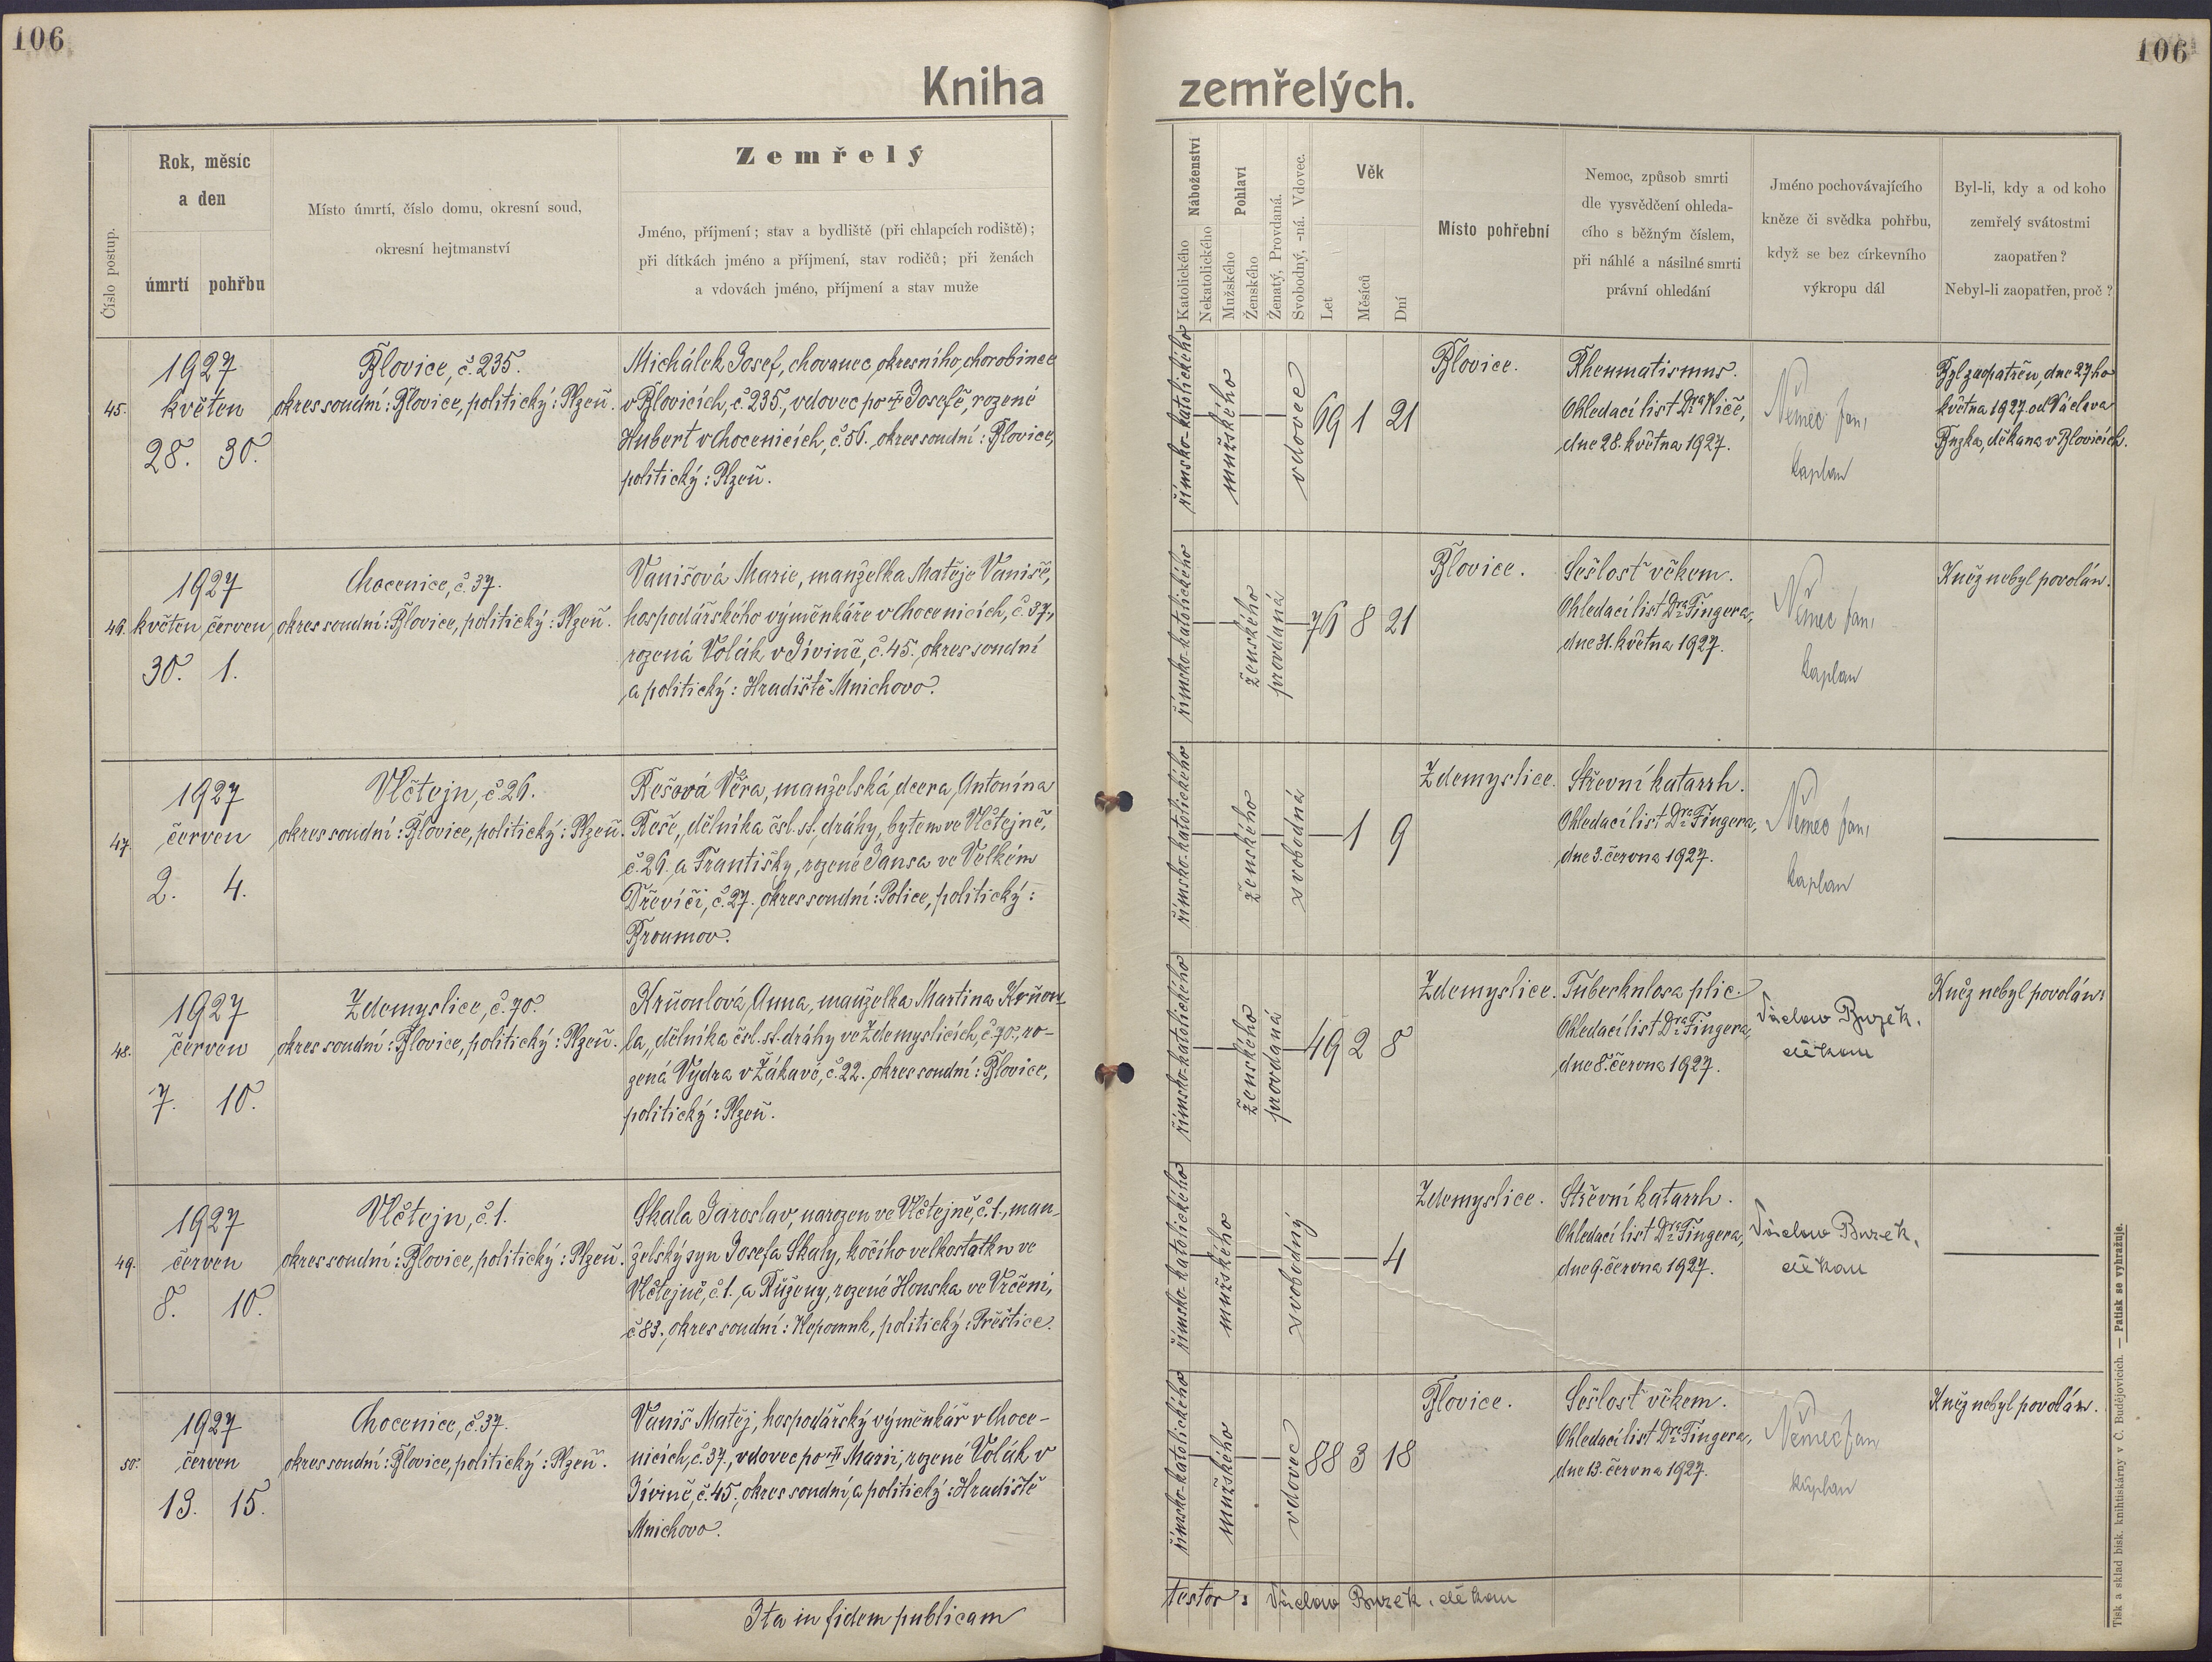 106
106
Kniha zemřelých.
Číslo postup.
Rok, měsíc
a den
úmrtí pohřbu
Místo úmrtí, číslo domu, okresní soud,
okresní hejtmanství
Zemřelý
Jméno, příjmení; stav a bydliště (při chlapcích rodiště);
při dítkách jméno a příjmení, stav rodičů; při ženách
a vdovách jméno, příjmení a stav muže
Náboženství
Katolického
Nekatolického
Pohlaví
Mužského
Ženského
Ženatý, Provdaná.
Svobodný, -ná. Vdovec.
Věk
Let
Měsíců
Dní
Místo pohřební
Nemoc, způsob smrti
dle vysvědčení ohleda-
cího s běžným číslem,
při náhlé a násilné smrti
právní ohledání
Jméno pochovávajícího
kněze či svědka pohřbu,
když se bez církevního
výkropu dál
Byl-li, kdy a od koho
zemřelý svátostmi
zaopatřen?
Nebyl-li zaopatřen, proč?
45.
1927
květen
28. 30.
Blovice, č. 235.
okres soudní: Blovice, politický: Plzeň.
Michálek Josef, chovanec okresního chorobince
v Blovicích, č. 235., vdovec po † Josefě, rozené
Hubert v Chocenicích, č. 56. okres soudní: Blovice,
politický: Plzeň.
římsko-katolického
mužského
vdovec
69 1 21
Blovice.
Rheumatismus.
Ohledací list Dra Niče,
dne 28. května 1927.
Němec Jan,
kaplan
Byl zaopatřen, dne 27ho
května 1927. od Václava
Buzka, děkana v Blovicích.
46.
1927
květen červen
30. 1.
Chocenice, č. 37.
okres soudní: Blovice, politický: Plzeň.
Vanišová Marie, manželka Matěje Vaniše,
hospodářského výměnkáře v Chocenicích, č. 37,
rozená Volák v Jivině, č. 45. okres soudní
a politický: Hradiště Mnichovo.
římsko-katolického
ženského
provdaná
76 8 21
Blovice.
Sešlost věkem.
Ohledací list Dra Fingera,
dne 31. května 1927.
Němec Jan,
kaplan
Kněz nebyl povolán.
47.
1927
červen
2. 4.
Vlčtejn, č. 26.
okres soudní: Blovice, politický: Plzeň.
Rešová Věra, manželská dcera Antonína
Reše, dělníka čsl. st. dráhy, bytem ve Vlčtejně,
č. 26. a Františky, rozené Jansa ve Velkém
Dřevíči, č. 27. okres soudní: Police, politický:
Broumov.
římsko-katolického
ženského
svobodná
1 9
Zdemyslice.
Střevní katarrh.
Ohledací list Dra Fingera,
dne 3. června 1927.
Němec Jan,
kaplan
48.
1927
červen
7. 10.
Zdemyslice, č. 70.
okres soudní: Blovice, politický: Plzeň.
Krňoulová Anna, manželka Martina Krňou-
la, dělníka čsl. st. dráhy ve Zdemyslicích, č. 70., ro-
zená Vydra v Žákavě, č. 22. okres soudní: Blovice,
politický: Plzeň.
římsko-katolického
ženského
provdaná
49 2 8
Zdemyslice.
Tuberkulosa plic.
Ohledací list Dra Fingera,
dne 8. června 1927.
Václav Buzek,
děkan
Kněz nebyl povolán.
49.
1927
červen
8. 10.
Vlčtejn, č. 1.
okres soudní: Blovice, politický: Plzeň.
Skala Jaroslav, narozen ve Vlčtejně, č. 1., man-
želský syn Josefa Skaly, kočího velkostatku ve
Vlčtejně, č. 1. a Růženy, rozené Honska ve Vrčeni,
č. 83., okres soudní: Nepomuk, politický: Přeštice.
římsko-katolického
mužského
svobodný
4
Zdemyslice.
Střevní katarrh.
Ohledací list Dra Fingera,
dne 9. června 1927.
Václav Buzek,
děkan
50.
1927
červen
13. 15.
Chocenice, č. 37.
okres soudní: Blovice, politický: Plzeň.
Vaniš Matěj, hospodářský výměnkář v Choce-
nicích, č. 37., vdovec po † Marii, rozené Volák v
Jivině, č. 45., okres soudní a politický: Hradiště
Mnichovo.
římsko-katolického
mužského
vdovec
88 3 18
Blovice.
Sešlost věkem.
Ohledací list Dra Fingera,
dne 13. června 1927.
Němec Jan
kaplan
Kněz nebyl povolán.
Ita in fidem publicam
testor: Václav Buzek, děkan
Tisk a sklad bisk. knihtiskárny v Č. Budějovicích. — Patisk se vyhražuje.